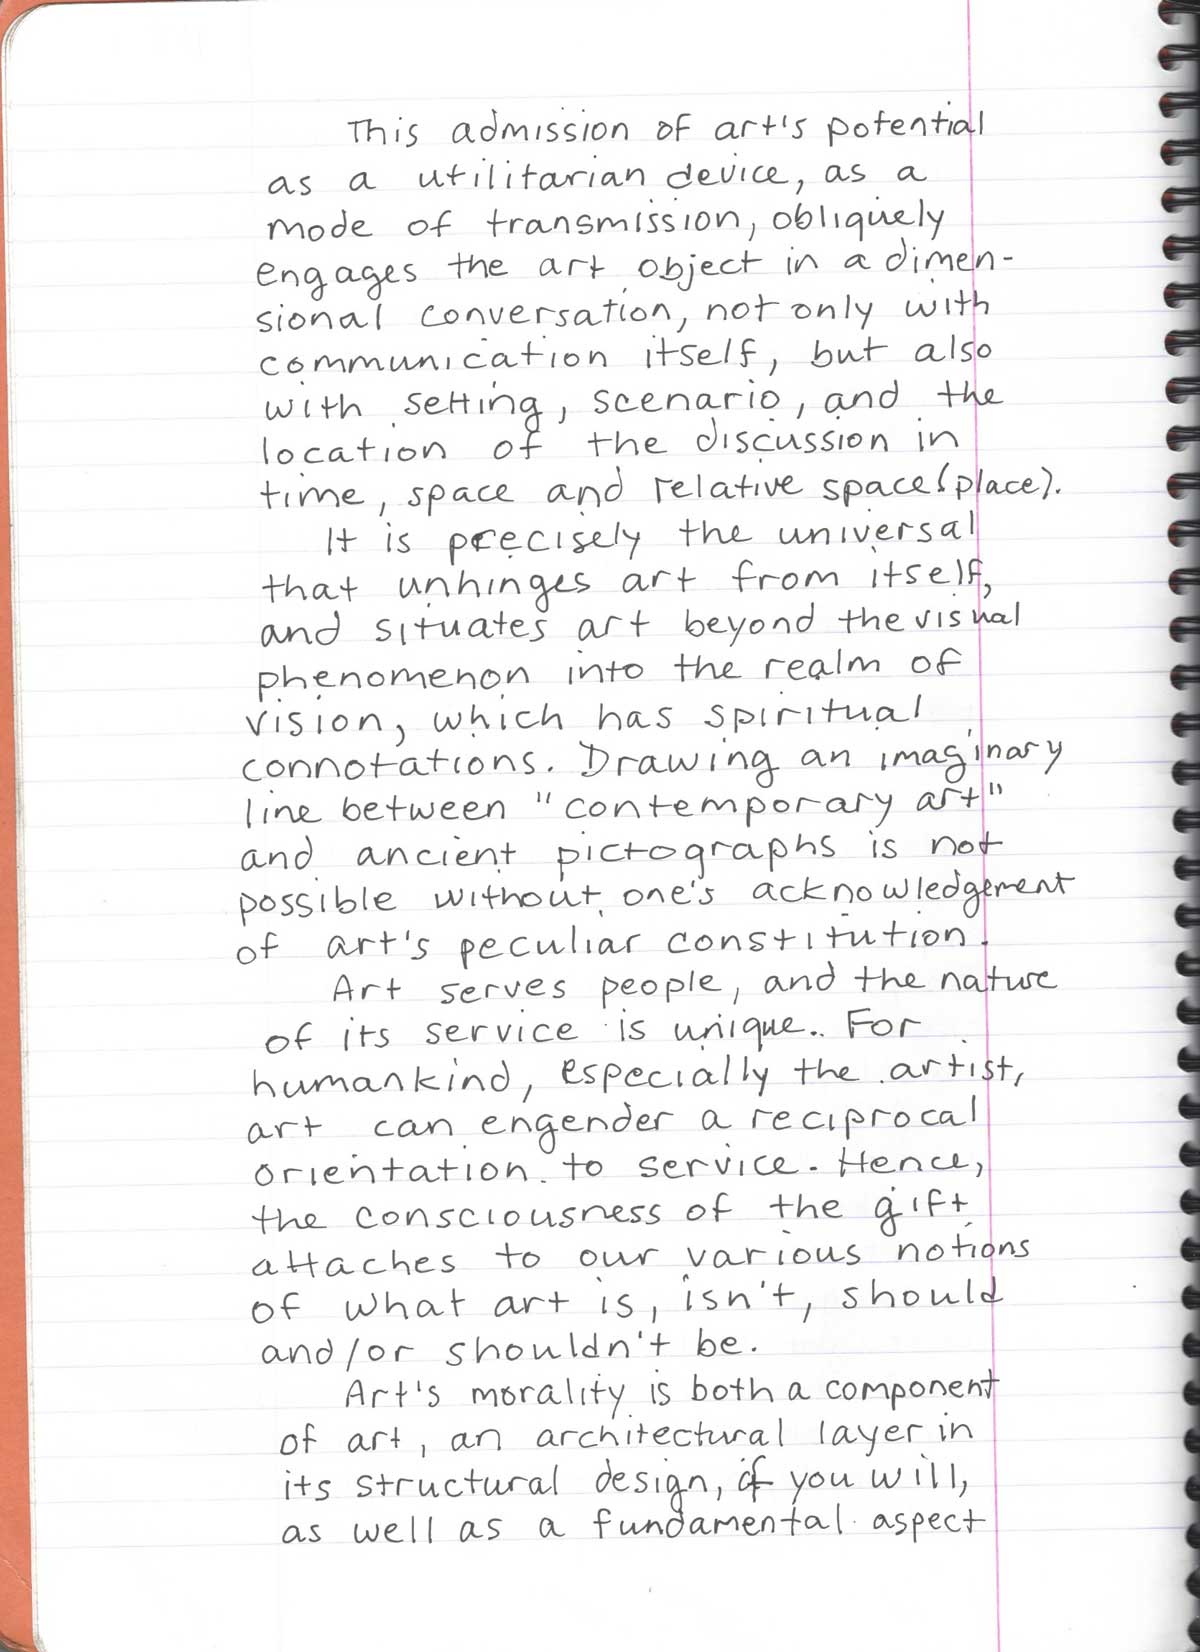 This admission of art's potential
as a utilitarian device, as a
mode of transmission, obliquely
engages the art object in a dimen-
sional conversation, not only with
communication itself, but also
with setting, scenario, and the
location of the discussion in
time, space and relative space (place).
It is precisely the universal
that unhinges art from itself,
and situates art beyond the visual
phenomenon into the realm of
vision, which has spiritual
connotations. Drawing an imaginary
line between "contemporary art"
and ancient pictographs is not
possible without one's acknowledgement
of art's peculiar constitution.
Art serves people, and the nature
of its service is unique. For
humankind, especially the artist,
art can engender a reciprocal
orientation to service. Hence,
the consciousness of the gift
attaches to our various notions
of what art is, isn't, should
and/or shouldn't be.
Art's morality is both a component
of art, an architectural layer in
its structural design, if you will,
as well as a fundamental aspect